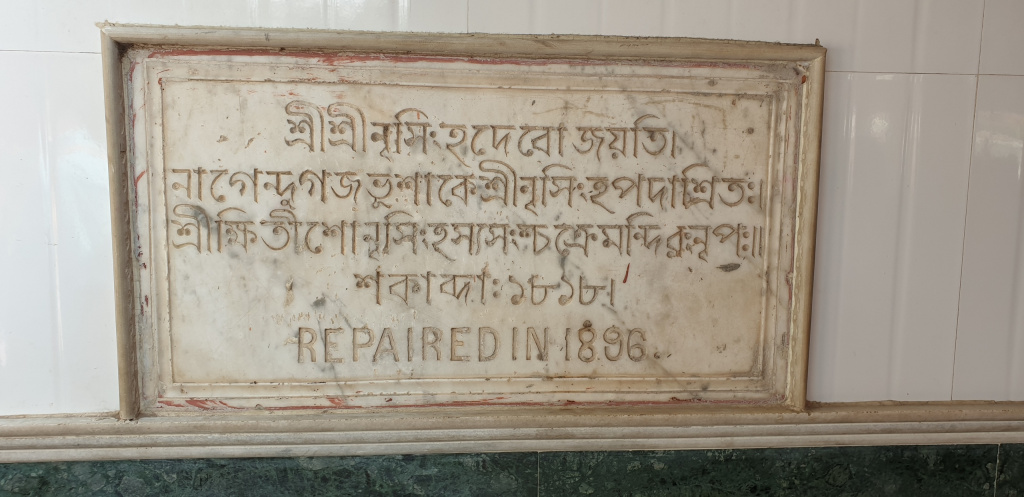 শ্রীশ্রীনৃসিংহদেবো জয়তি।
নাগেন্দুগজভূশাকে শ্রীনৃসিংহপদাশ্রিতঃ।
শ্রীক্ষিতীশো নৃসিংহস্য সংশ্চক্রে মন্দিরং নৃপঃ॥
শকাব্দাঃ ১৮১৮।
REPAIRED IN 1896.